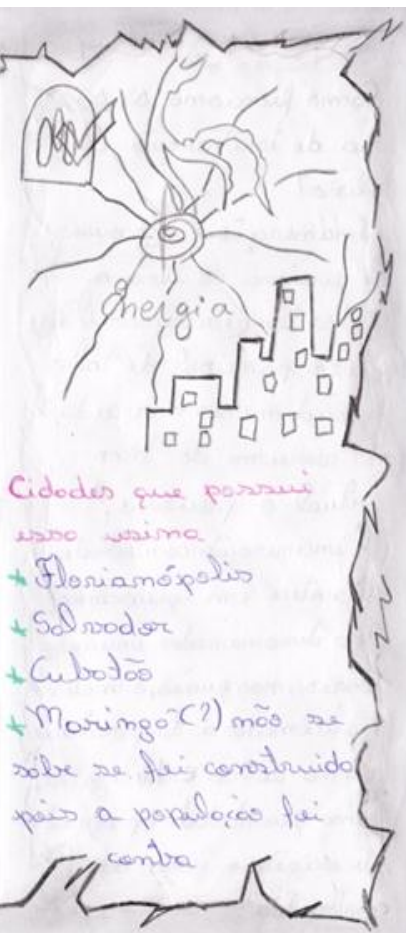 Energia
Cidades que possui
essa usina
+ Florianópolis
+ Salvador
+ Cubatão
+ Maringá (?) não se
sabe se foi construída
pois a população foi
contra